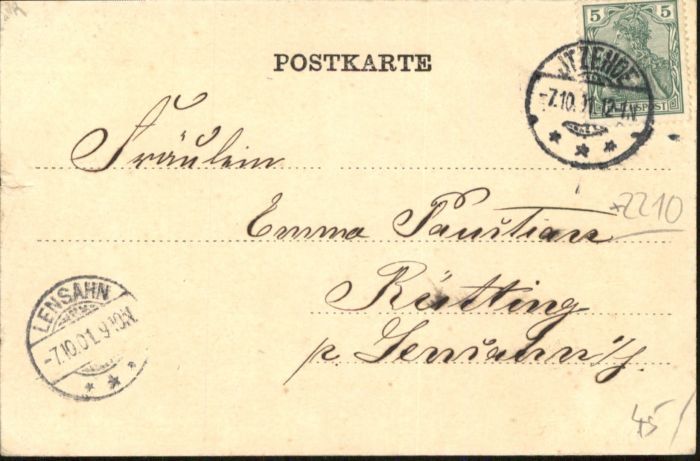 POSTKARTE
5 5
REICHSPOST
ITZEHOE
-7.10.01.12-1N
Fräulein
Emma Paustian
*2210
Rütting
p. Lensahn i/H.
LENSAHN
-7.10.01.9-10N.
45/